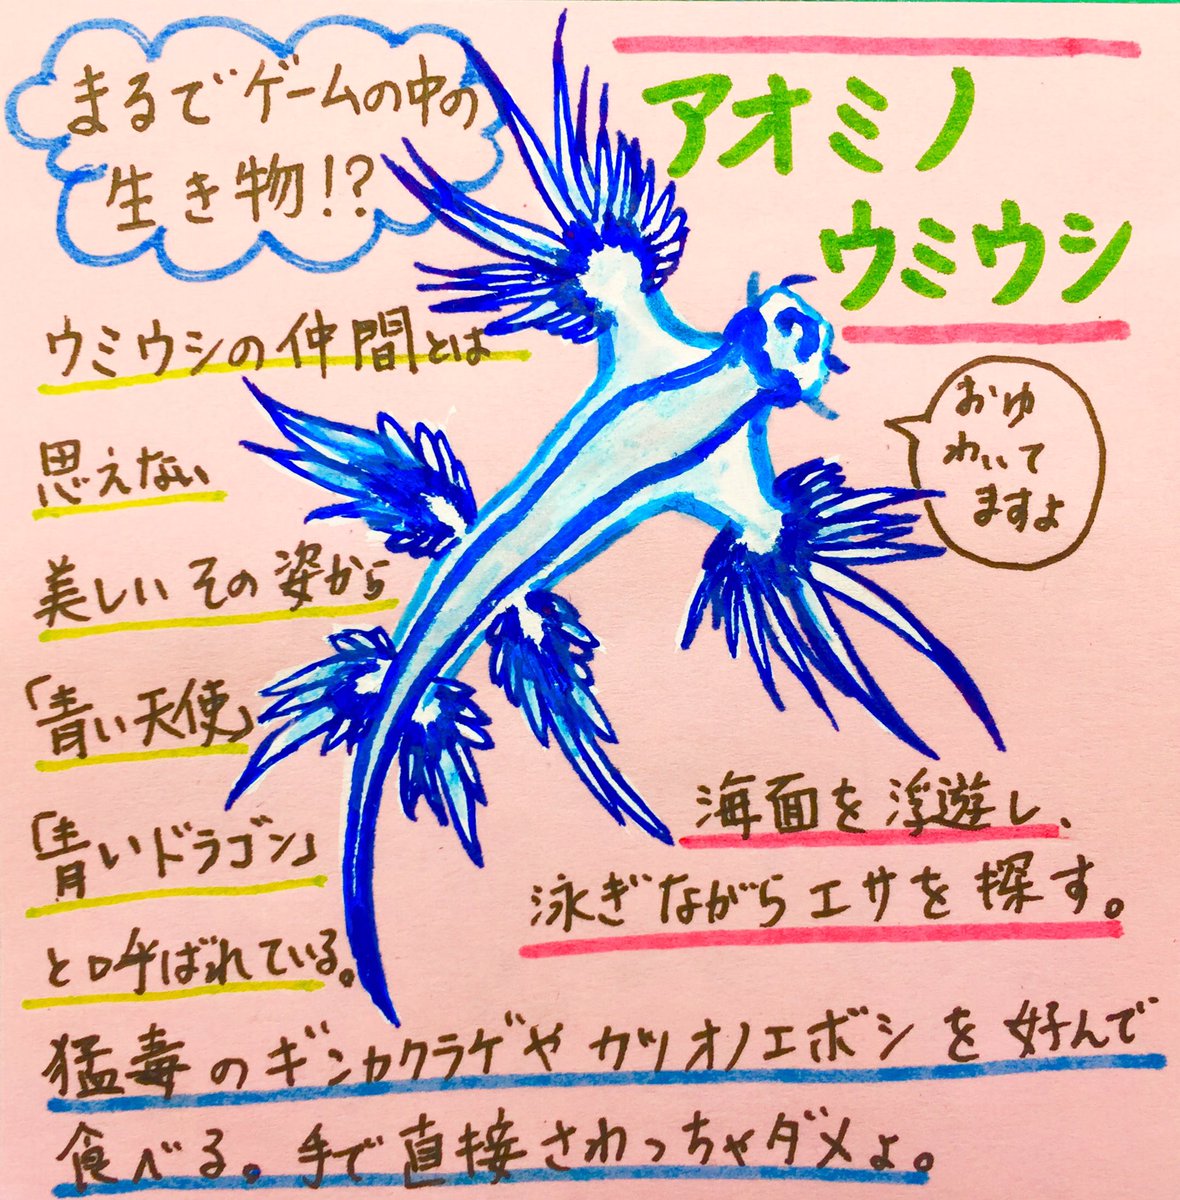 まるでゲームの中の
生き物!?
アオミノ
ウミウシ
ウミウシの仲間とは
思えない
美しいその姿から
「青い天使」
「青いドラゴン」
と呼ばれている。
おゆ
わいて
ますよ
海面を浮遊し、
泳ぎながらエサを探す。
猛毒のギンカクラゲやカツオノエボシを好んで
食べる。手で直接さわっちゃダメよ。